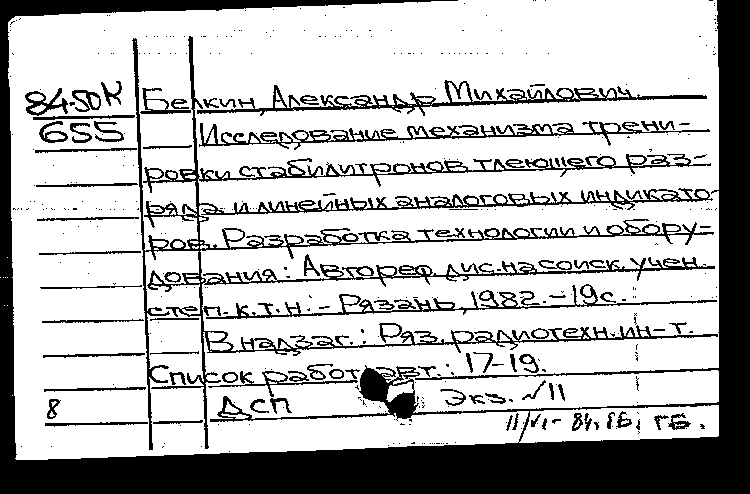 84-50К Белкин, Александр Михайлович.
655 Исследование механизма трени-
ровки стабилитронов тлеющего раз-
ряда и линейных аналоговых индикато-
ров. Разработка технологии и обору-
дования: Автореф. дис. на соиск. учен.
степ. к.т.н. - Рязань, 1982. - 19с.
В надзаг.: Ряз. радиотехн. ин-т.
Список работ авт.: 17-19.
8 ДСП Экз. №11
11/VI - 84. ГБ.